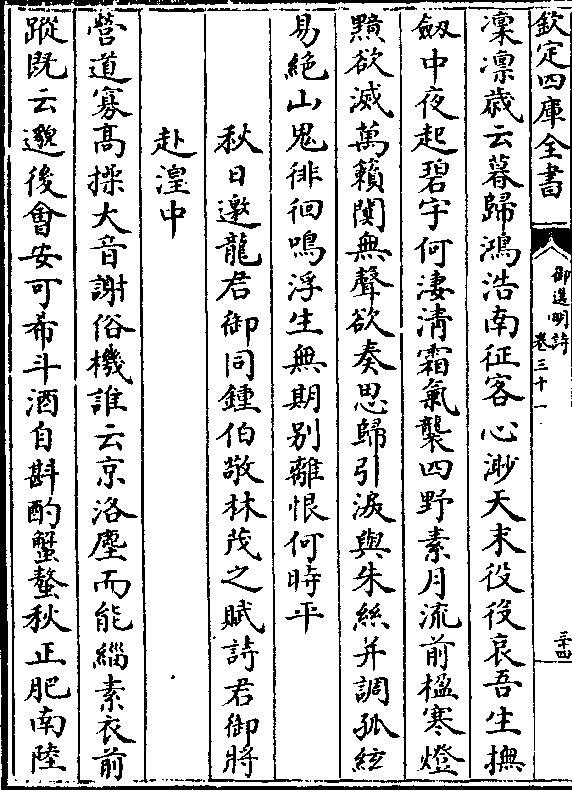 欽定四庫全書
御選明詩
卷三十一
三十四
凜凛歳云暮歸鴻浩南征客心渺天末役役哀吾生撫
劔中夜起碧宇何淒清霜氣襲四野素月流前楹寒燈
黯欲滅萬籟闃無聲欲奏思歸引淚與朱絲并調孤絃
易絶山鬼徘徊鳴浮生無期别離恨何時平
秋日邀龍君御同鍾伯敬林茂之賦詩君御將
赴湟中
營道寡高操大音謝俗機誰云京洛塵而能緇素衣前
蹤既云邈後會安可希斗酒自斟酌蟹螯秋正肥南陸